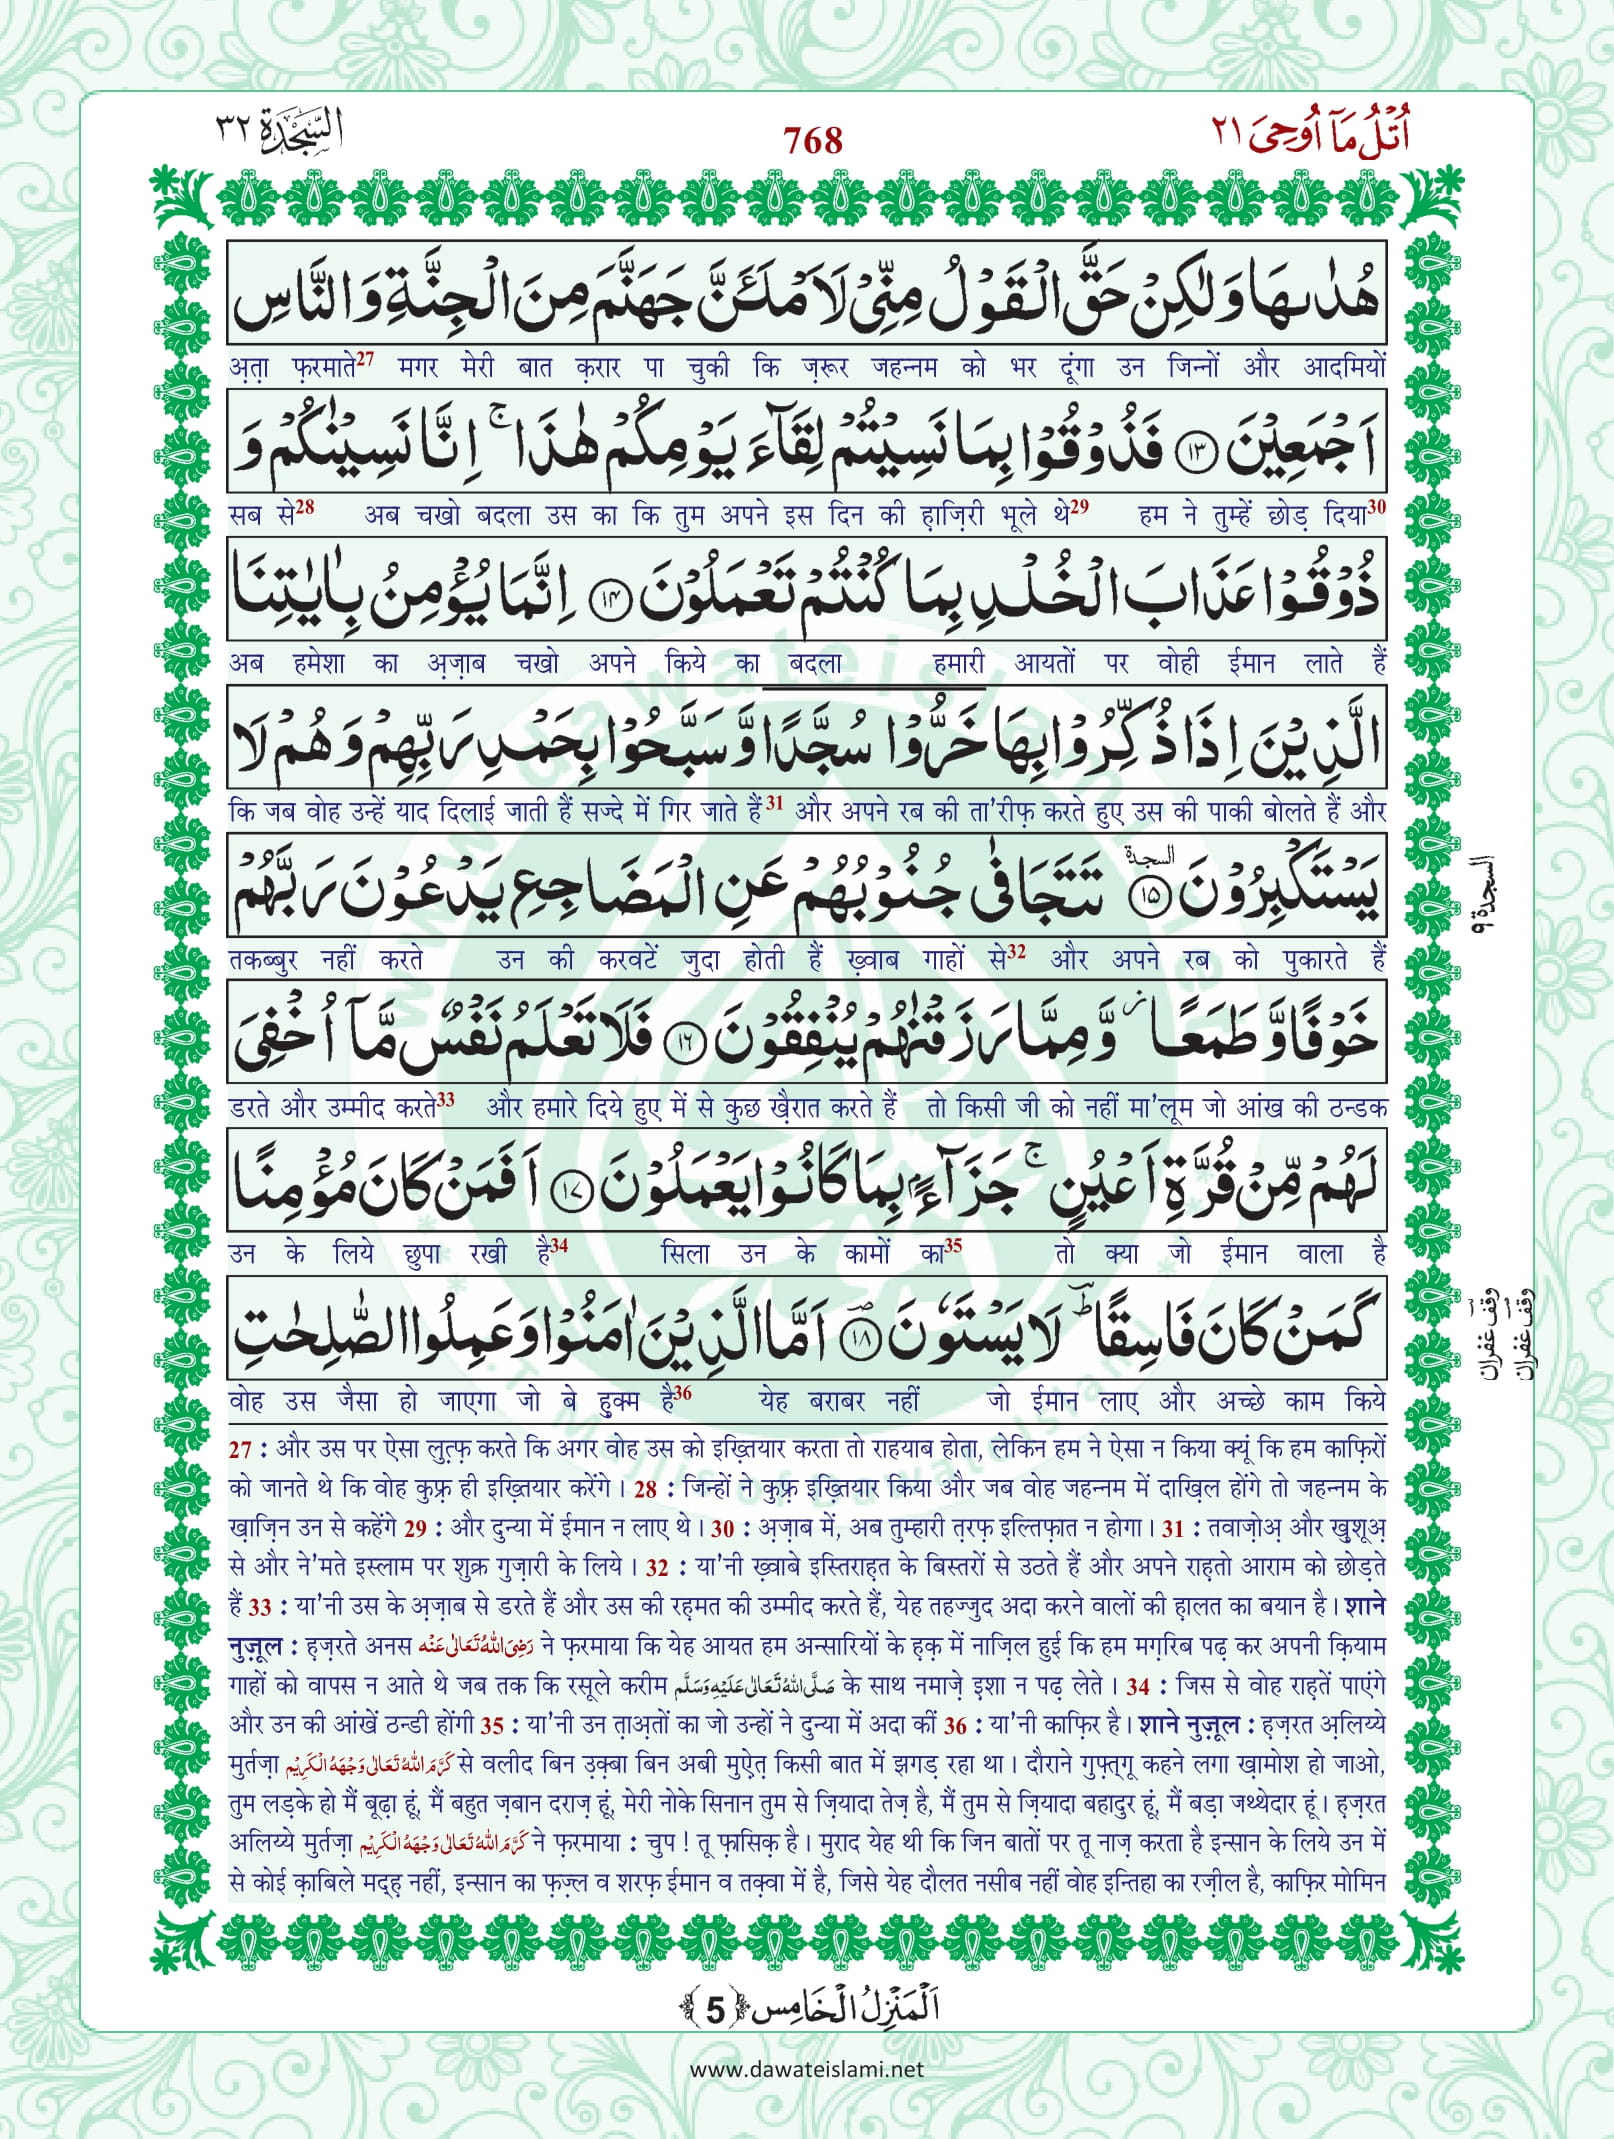 اُتْلُ مَاۤ اُوْحِیَ ۲۱
768
السَّجْدَة ۳۲
هُدٰىهَا وَ لٰكِنْ حَقَّ الْقَوْلُ مِنِّیْ لَاَمْلَـَٔنَّ جَهَنَّمَ مِنَ الْجِنَّةِ وَ النَّاسِ
अ़त़ा फ़रमाते27 मगर मेरी बात क़रार पा चुकी कि ज़रूर जहन्नम को भर दूंगा उन जिन्नों और आदमियों
اَجْمَعِیْنَ ﴿۱۳﴾ فَذُوْقُوْا بِمَا نَسِیْتُمْ لِقَآءَ یَوْمِكُمْ هٰذَا ۚ اِنَّا نَسِیْنٰكُمْ وَ
सब से28 अब चखो बदला उस का कि तुम अपने इस दिन की ह़ाज़िरी भूले थे29 हम ने तुम्हें छोड़ दिया30
ذُوْقُوْا عَذَابَ الْخُلْدِ بِمَا كُنْتُمْ تَعْمَلُوْنَ ﴿۱۴﴾ اِنَّمَا یُؤْمِنُ بِاٰیٰتِنَا
अब हमेशा का अ़ज़ाब चखो अपने किये का बदला हमारी आयतों पर वोही ईमान लाते हैं
الَّذِیْنَ اِذَا ذُكِّرُوْا بِهَا خَرُّوْا سُجَّدًا وَّ سَبَّحُوْا بِحَمْدِ رَبِّهِمْ وَ هُمْ لَا
कि जब वोह उन्हें याद दिलाई जाती हैं सज्दे में गिर जाते हैं31 और अपने रब की ता'रीफ़ करते हुए उस की पाकी बोलते हैं और
یَسْتَكْبِرُوْنَ ﴿۱۵﴾ السجدة تَتَجَافٰى جُنُوْبُهُمْ عَنِ الْمَضَاجِعِ یَدْعُوْنَ رَبَّهُمْ
السجدة ۹
तकब्बुर नहीं करते उन की करवटें जुदा होती हैं ख़्वाब गाहों से32 और अपने रब को पुकारते हैं
خَوْفًا وَّ طَمَعًا ٘ وَّ مِمَّا رَزَقْنٰهُمْ یُنْفِقُوْنَ ﴿۱۶﴾ فَلَا تَعْلَمُ نَفْسٌ مَّاۤ اُخْفِیَ
डरते और उम्मीद करते33 और हमारे दिये हुए में से कुछ ख़ैरात करते हैं तो किसी जी को नहीं मा'लूम जो आंख की ठन्डक
لَهُمْ مِّنْ قُرَّةِ اَعْیُنٍ ۚ جَزَآءًۢ بِمَا كَانُوْا یَعْمَلُوْنَ ﴿۱۷﴾ اَفَمَنْ كَانَ مُؤْمِنًا
उन के लिये छुपा रखी है34 सिला उन के कामों का35 तो क्या जो ईमान वाला है
كَمَنْ كَانَ فَاسِقًا ؕ لَا یَسْتَوٗنَ ﴿۱۸﴾ اَمَّا الَّذِیْنَ اٰمَنُوْا وَ عَمِلُوا الصّٰلِحٰتِ
وقف غفران
وقف غفران
वोह उस जैसा हो जाएगा जो बे हुक्म है36 येह बराबर नहीं जो ईमान लाए और अच्छे काम किये
27 : और उस पर ऐसा लुत़्फ़ करते कि अगर वोह उस को इख़्तियार करता तो राहयाब होता, लेकिन हम ने ऐसा न किया क्यूं कि हम काफ़िरों
को जानते थे कि वोह कुफ़्र ही इख़्तियार करेंगे । 28 : जिन्हों ने कुफ़्र इख़्तियार किया और जब वोह जहन्नम में दाख़िल होंगे तो जहन्नम के
ख़ाज़िन उन से कहेंगे 29 : और दुन्या में ईमान न लाए थे । 30 : अ़ज़ाब में, अब तुम्हारी त़रफ़ इल्तिफ़ात न होगा । 31 : तवाज़ोअ़ और ख़ुशूअ़
से और ने'मते इस्लाम पर शुक्र गुज़ारी के लिये । 32 : या'नी ख़्वाबे इस्तिराह़त के बिस्तरों से उठते हैं और अपने राह़तो आराम को छोड़ते
हैं 33 : या'नी उस के अ़ज़ाब से डरते हैं और उस की रह़मत की उम्मीद करते हैं, येह तहज्जुद अदा करने वालों की ह़ालत का बयान है । शाने
नुज़ूल : ह़ज़रते अनस رَضِیَ اللّٰهُ تَعَالٰی عَنْه ने फ़रमाया कि येह आयत हम अन्सारियों के ह़क़ में नाज़िल हुई कि हम मग़रिब पढ़ कर अपनी क़ियाम
गाहों को वापस न आते थे जब तक कि रसूले करीम صَلَّی اللّٰهُ تَعَالٰی عَلَیْهِ وَسَلَّم के साथ नमाज़े इशा न पढ़ लेते । 34 : जिस से वोह राह़तें पाएंगे
और उन की आंखें ठन्डी होंगी 35 : या'नी उन त़ाअ़तों का जो उन्हों ने दुन्या में अदा कीं 36 : या'नी काफ़िर है । शाने नुज़ूल : ह़ज़रत अ़लिय्ये
मुर्तज़ा كَرَّمَ اللّٰهُ تَعَالٰی وَجْهَهُ الْكَرِیْم से वलीद बिन उ़क़्बा बिन अबी मुऐ़त़ किसी बात में झगड़ रहा था । दौराने गुफ़्त्गू कहने लगा ख़ामोश हो जाओ,
तुम लड़के हो मैं बूढ़ा हूं, मैं बहुत ज़बान दराज़ हूं, मेरी नोके सिनान तुम से ज़ियादा तेज़ है, मैं तुम से ज़ियादा बहादुर हूं, मैं बड़ा जथ्थेदार हूं । ह़ज़रत
अ़लिय्ये मुर्तज़ा كَرَّمَ اللّٰهُ تَعَالٰی وَجْهَهُ الْكَرِیْم ने फ़रमाया : चुप ! तू फ़ासिक़ है । मुराद येह थी कि जिन बातों पर तू नाज़ करता है इन्सान के लिये उन में
से कोई क़ाबिले मद्ह़ नहीं, इन्सान का फ़ज़्ल व शरफ़ ईमान व तक़्वा में है, जिसे येह दौलत नसीब नहीं वोह इन्तिहा का रज़ील है, काफ़िर मोमिन
اَلْمَنْزِلُ الْخَامِس ﴿5﴾
www.dawateislami.net